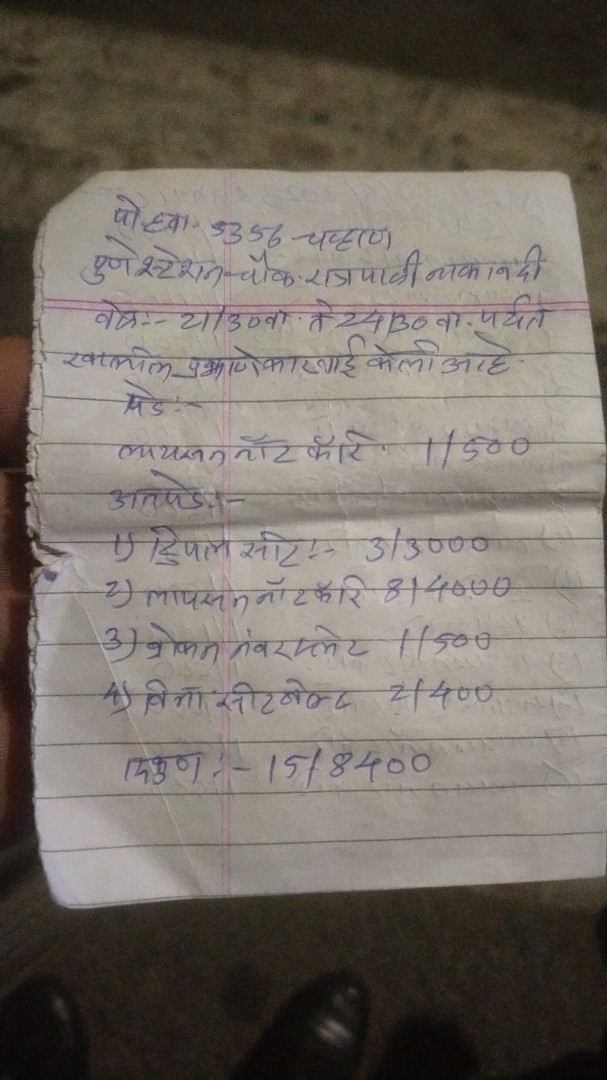 पो.हवा. 5356 चव्हाण
पुणे स्टेशन चौक रात्रपाळी नाकाबंदी
वेळ:- 21/30 वा. ते 24/30 वा. पर्यंत
खालील प्रमाणे कारवाई केली आहे.
पेड:-
लायसन नॉट कॅरि. 1/500
अनपेड:-
1) ट्रिपल सीट:- 3/3000
2) लायसन नॉट कॅरि 8/4000
3) ब्रोकन नंबरप्लेट 1/500
4) विना सीटबेल्ट 2/400
एकुण:- 15/8400